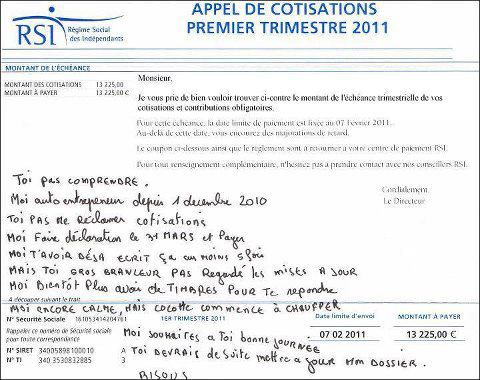 RSI
Régime Social
des Indépendants
APPEL DE COTISATIONS
PREMIER TRIMESTRE 2011
MONTANT DE L'ÉCHÉANCE
MONTANT DES COTISATIONS 13 225,00
MONTANT À PAYER 13 225,00 €
Monsieur,
Je vous prie de bien vouloir trouver ci-contre le montant de l'échéance trimestrielle de vos
cotisations et contributions obligatoires.
Pour cette échéance, la date limite de paiement est fixée au 07 Février 2011.
Au-delà de cette date, vous encourez des majorations de retard.
Le coupon ci-dessous ainsi que le règlement sont à retourner à votre centre de paiement RSI.
Pour tout renseignement complémentaire, n'hésitez pas à prendre contact avec nos conseillers RSI.
Cordialement.
Le Directeur
Toi pas comprendre.
Moi auto entrepreneur depuis 1 décembre 2010
Toi PAS Me Réclamer cotisations
Moi Faire déclaration le 31 MARS et Payer
Moi T'AVOIR DÉJA ECRIT ÇA au moins 5 fois
MAIS Toi GROS BRANLEUR PAS Regardé les mises A JOUR
Moi Bientôt Plus avoir de TIMBRES POUR Te répondre
A découper suivant le trait
MOI ENCORE CALME, MAIS COCOTTE COMMENCE À CHAUFFER
N° Sécurité Social 1810534142047 81
Rappeler ce numéro de Sécurité sociale
pour toute correspondance
N° SIRET 34005898100010 A
N° TI 340 3530832885 3
1ER TRIMESTRE 2011
Date limite d'envoi
07 02 2011
MONTANT À PAYER
13 225,00 €
Moi souhaites à Toi bonne journée
Toi DEVRAIS de suite mettre a jour mon DOSSIER.
BISOUS